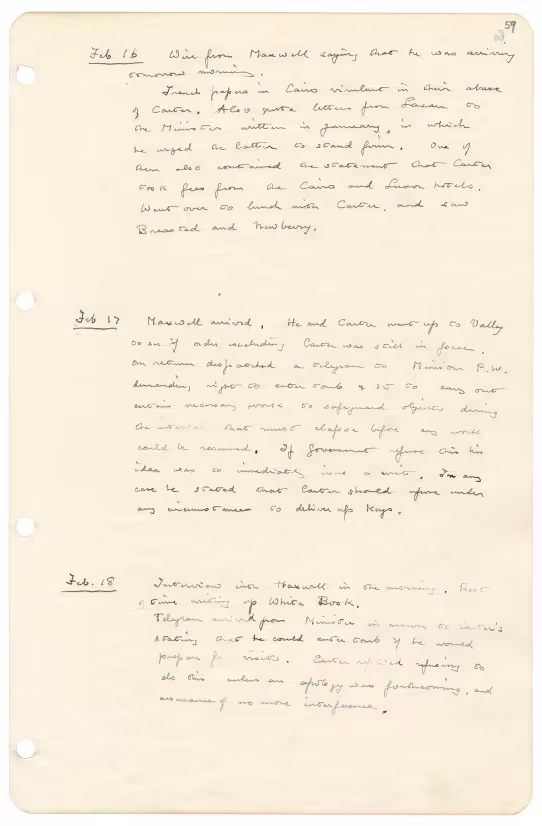 59
Feb 16 Wire from Maxwell saying that he was arriving
tomorrow morning.
French papers in Cairo virulent in their abuse
of Carter. Also quote letters from Lacau to
the Minister written in January, in which
he urged the latter to stand firm. One of
them also contained the statement that Carter
took fees from the Cairo and Luxor hotels.
Went over to lunch with Carter, and saw
Breasted and Newberry.
Feb 17 Maxwell arrived. He and Carter went up to Valley
to see if order excluding Carter was still in force.
On return despatched a telegram to Minister P.W.
demanding right to enter tomb & so to carry out
certain necessary work to safeguard objects during
the interval that must elapse before any work
could be resumed. If Government refuse this his
idea was to immediately issue a writ. In any
case he stated that Carter should refuse under
any circumstances to deliver up keys.
Feb. 18 Interview with Maxwell in the morning. Rest
of time writing up White Book.
Telegram arrived from Minister in answer to Carter's
stating that he could enter tomb if he would
prepare for visits. Carter replied refusing to
do this unless an apology was forthcoming, and
assurance of no more interference.